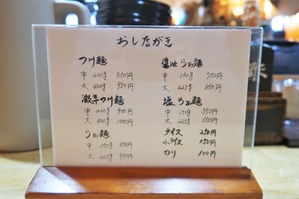 おしながき
つけ麺
中 200g 850円
大 400g 950円
激辛つけ麺
中 200g 900円
大 400g 1000円
らぁ麺
中 150g 850円
大 225g 950円
醤油らぁ麺
中 150g 750円
大 225g 850円
塩らぁ麺
中 150g 750円
大 225g 850円
ライス 250円
小ライス 150円
のり 100円